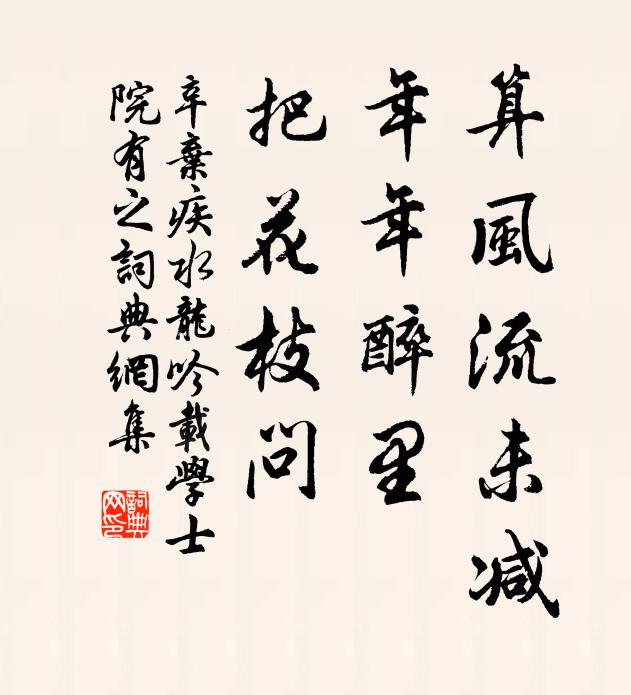 算風流未减
年年醉里
把花枝问
辛棄疾水龍吟載學士
院有之詞典網集
詞典
网印